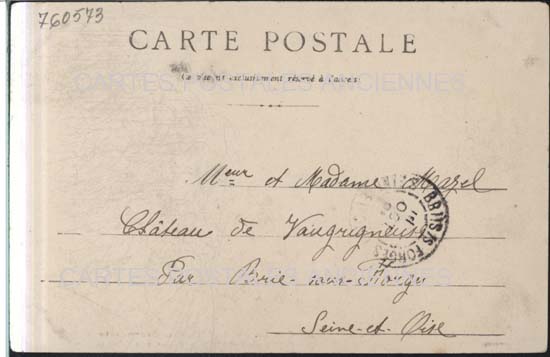 760573
CARTE POSTALE
Ce côté est exclusivement réservé à l'adresse
CARTES POSTALES ANCIENNES
Meur et Madame Mazel
Château de Vaugrigneuse
CARTES POSTALES ANCIENNES
Par Briis-sous-Forges
BRIIS-S-FORGES
Seine-et-Oise